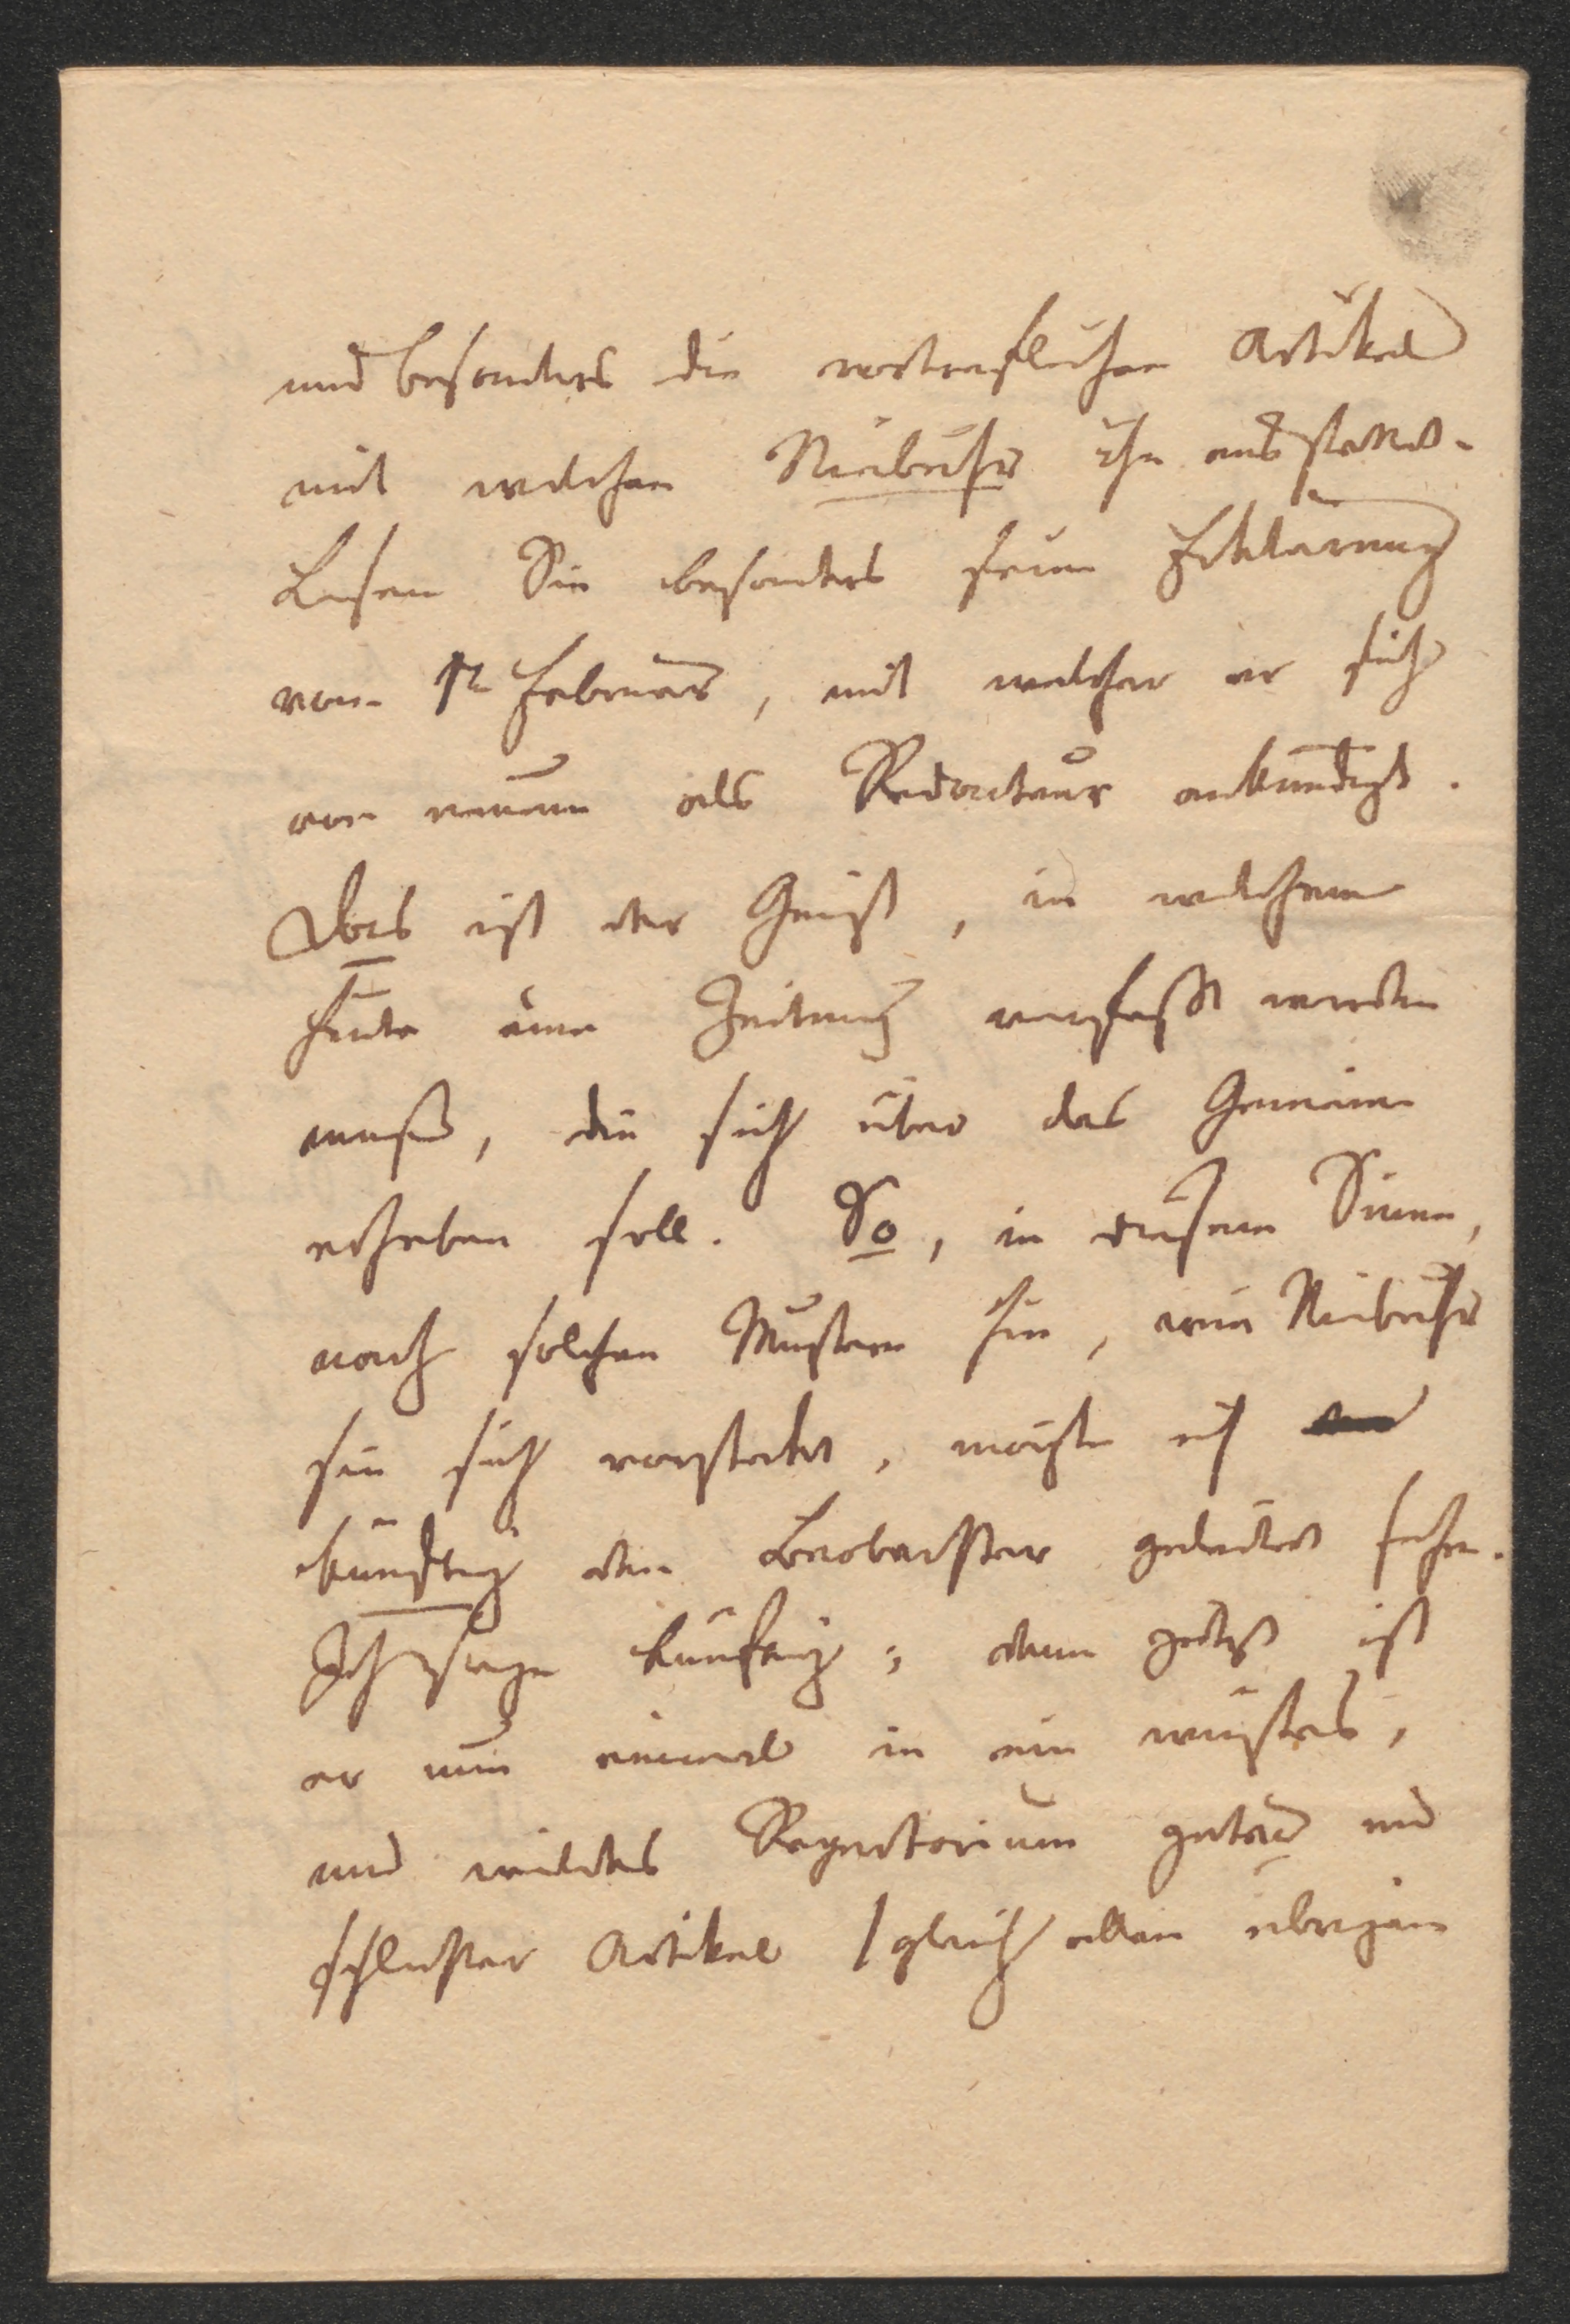 und besonders die vortreflichen Artikel
mit welchen Niebuhr ihn ausstattet.
Lesen Sie besonders seine Erklärung
vom 1n Februar, mit welcher er sich
von neuem als Redacteur ankündigt.
Das ist der Geist, in welchem
heute eine Zeitung verfaßt werden
muß, die sich über das Gemeine
erheben soll. So, in diesem Sinne,
nach solchen Mustern hin, wie Niebuhr
sie sich vorstecket, möchte ich
künftig den Beobachter geleitet sehen.
Ich sage künftig; denn jetzt ist
er nun einmal in ein wüstes,
und wildes Repertorium guter und
schlechter Artikel /gleich allen übrigen